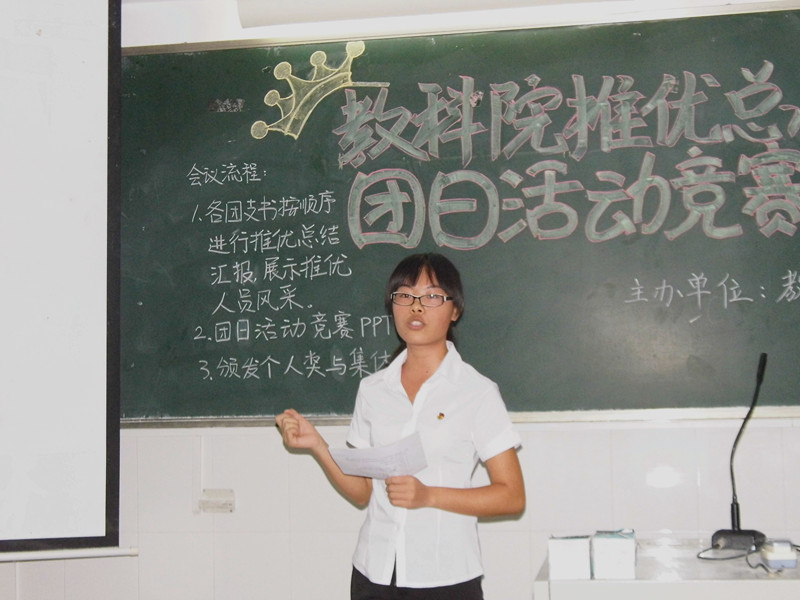 教科院推优总
团日活动竞赛
会议流程：
1.各团支书按顺序
进行推优总结
汇报，展示推优
人员风采。
2.团日活动竞赛PPT
3.颁发个人奖与集体
主办单位：教